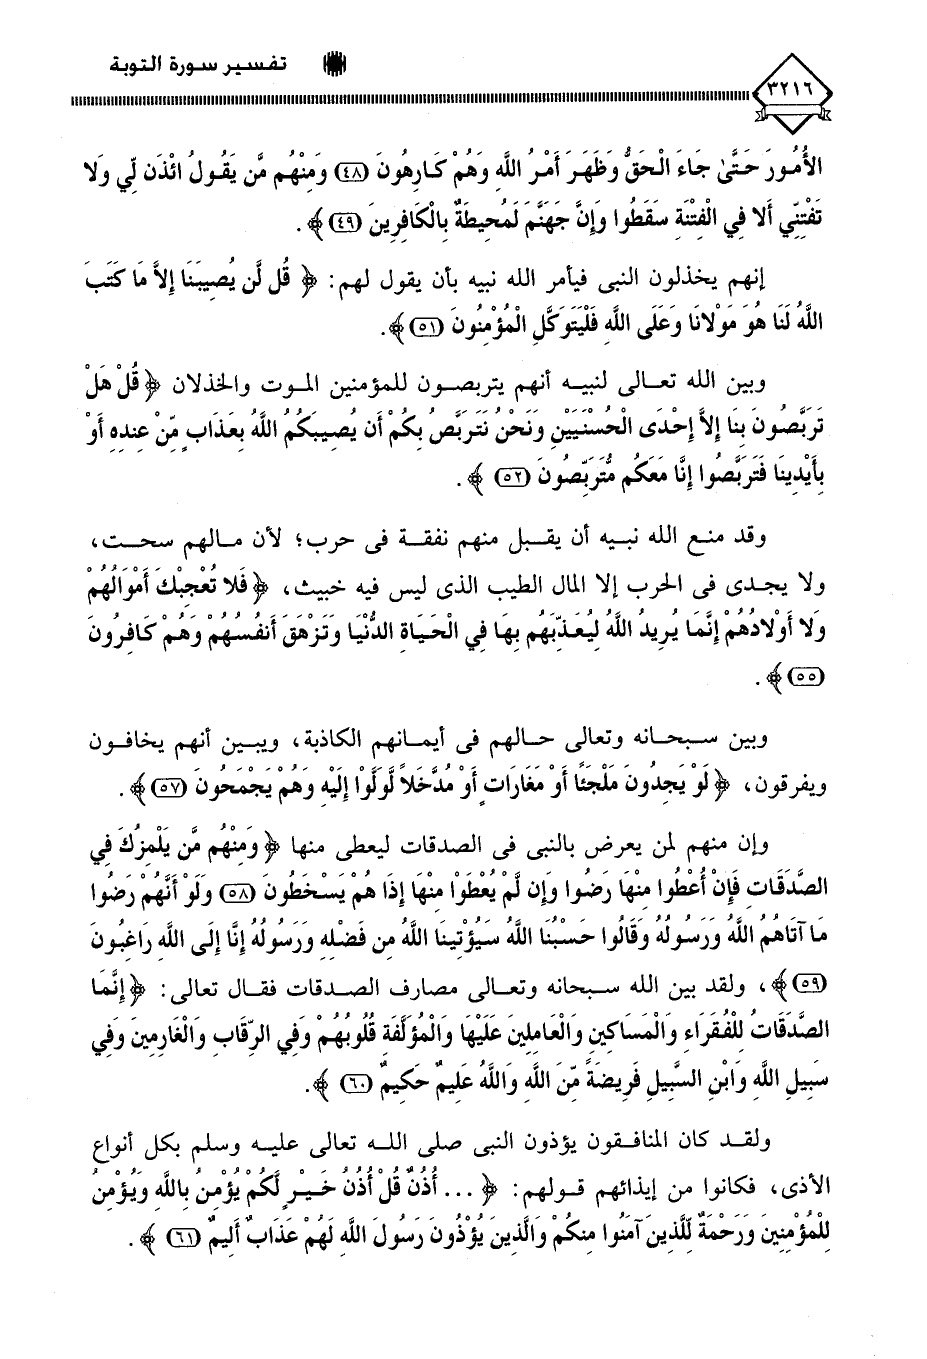 تفسير سورة التوبة
٣٢١٦
الأُمُورَ حَتَّىٰ جَاءَ الْحَقُّ وَظَهَرَ أَمْرُ اللَّهِ وَهُمْ كَارِهُونَ (٤٨) وَمِنْهُم مَّن يَقُولُ ائْذَن لِّي وَلا
تَفْتِنِّي أَلا فِي الْفِتْنَةِ سَقَطُوا وَإِنَّ جَهَنَّمَ لَمُحِيطَةٌ بِالْكَافِرِينَ (٤٩) ﴾.
إنهم يخذلون النبى فيأمر الله نبيه بأن يقول لهم: ﴿ قُل لَّن يُصِيبَنَا إِلاَّ مَا كَتَبَ
اللَّهُ لَنَا هُوَ مَوْلانَا وَعَلَى اللَّهِ فَلْيَتَوَكَّلِ الْمُؤْمِنُونَ (٥١) ﴾.
وبين الله تعالى لنبيه أنهم يتربصون للمؤمنين الموت والخذلان ﴿ قُلْ هَلْ
تَرَبَّصُونَ بِنَا إِلاَّ إِحْدَى الْحُسْنَيَيْنِ وَنَحْنُ نَتَرَبَّصُ بِكُمْ أَن يُصِيبَكُمُ اللَّهُ بِعَذَابٍ مِّنْ عِندِهِ أَوْ
بِأَيْدِينَا فَتَرَبَّصُوا إِنَّا مَعَكُم مُّتَرَبِّصُونَ (٥٢) ﴾.
وقد منع الله نبيه أن يقبل منهم نفقة فى حرب؛ لأن مالهم سحت،
ولا يجدى فى الحرب إلا المال الطيب الذى ليس فيه خبيث، ﴿ فَلا تُعْجِبْكَ أَمْوَالُهُمْ
وَلا أَوْلادُهُمْ إِنَّمَا يُرِيدُ اللَّهُ لِيُعَذِّبَهُم بِهَا فِي الْحَيَاةِ الدُّنْيَا وَتَزْهَقَ أَنفُسُهُمْ وَهُمْ كَافِرُونَ
(٥٥) ﴾.
وبين سبحانه وتعالى حالهم فى أيمانهم الكاذبة، ويبين أنهم يخافون
ويفرقون، ﴿ لَوْ يَجِدُونَ مَلْجَئًا أَوْ مَغَارَاتٍ أَوْ مُدَّخَلاً لَّوَلَّوْا إِلَيْهِ وَهُمْ يَجْمَحُونَ (٥٧) ﴾.
وإن منهم لمن يعرض بالنبى فى الصدقات ليعطى منها ﴿ وَمِنْهُم مَّن يَلْمِزُكَ فِي
الصَّدَقَاتِ فَإِنْ أُعْطُوا مِنْهَا رَضُوا وَإِن لَّمْ يُعْطَوْا مِنْهَا إِذَا هُمْ يَسْخَطُونَ (٥٨) وَلَوْ أَنَّهُمْ رَضُوا
مَا آتَاهُمُ اللَّهُ وَرَسُولُهُ وَقَالُوا حَسْبُنَا اللَّهُ سَيُؤْتِينَا اللَّهُ مِن فَضْلِهِ وَرَسُولُهُ إِنَّا إِلَى اللَّهِ رَاغِبُونَ
(٥٩) ﴾، ولقد بين الله سبحانه وتعالى مصارف الصدقات فقال تعالى: ﴿ إِنَّمَا
الصَّدَقَاتُ لِلْفُقَرَاءِ وَالْمَسَاكِينِ وَالْعَامِلِينَ عَلَيْهَا وَالْمُؤَلَّفَةِ قُلُوبُهُمْ وَفِي الرِّقَابِ وَالْغَارِمِينَ وَفِي
سَبِيلِ اللَّهِ وَابْنِ السَّبِيلِ فَرِيضَةً مِّنَ اللَّهِ وَاللَّهُ عَلِيمٌ حَكِيمٌ (٦٠) ﴾.
ولقد كان المنافقون يؤذون النبى صلى الله تعالى عليه وسلم بكل أنواع
الأذى، فكانوا من إيذائهم قولهم: ﴿ ... أُذُنٌ قُلْ أُذُنُ خَيْرٍ لَّكُمْ يُؤْمِنُ بِاللَّهِ وَيُؤْمِنُ
لِلْمُؤْمِنِينَ وَرَحْمَةٌ لِّلَّذِينَ آمَنُوا مِنكُمْ وَالَّذِينَ يُؤْذُونَ رَسُولَ اللَّهِ لَهُمْ عَذَابٌ أَلِيمٌ (٦١) ﴾.